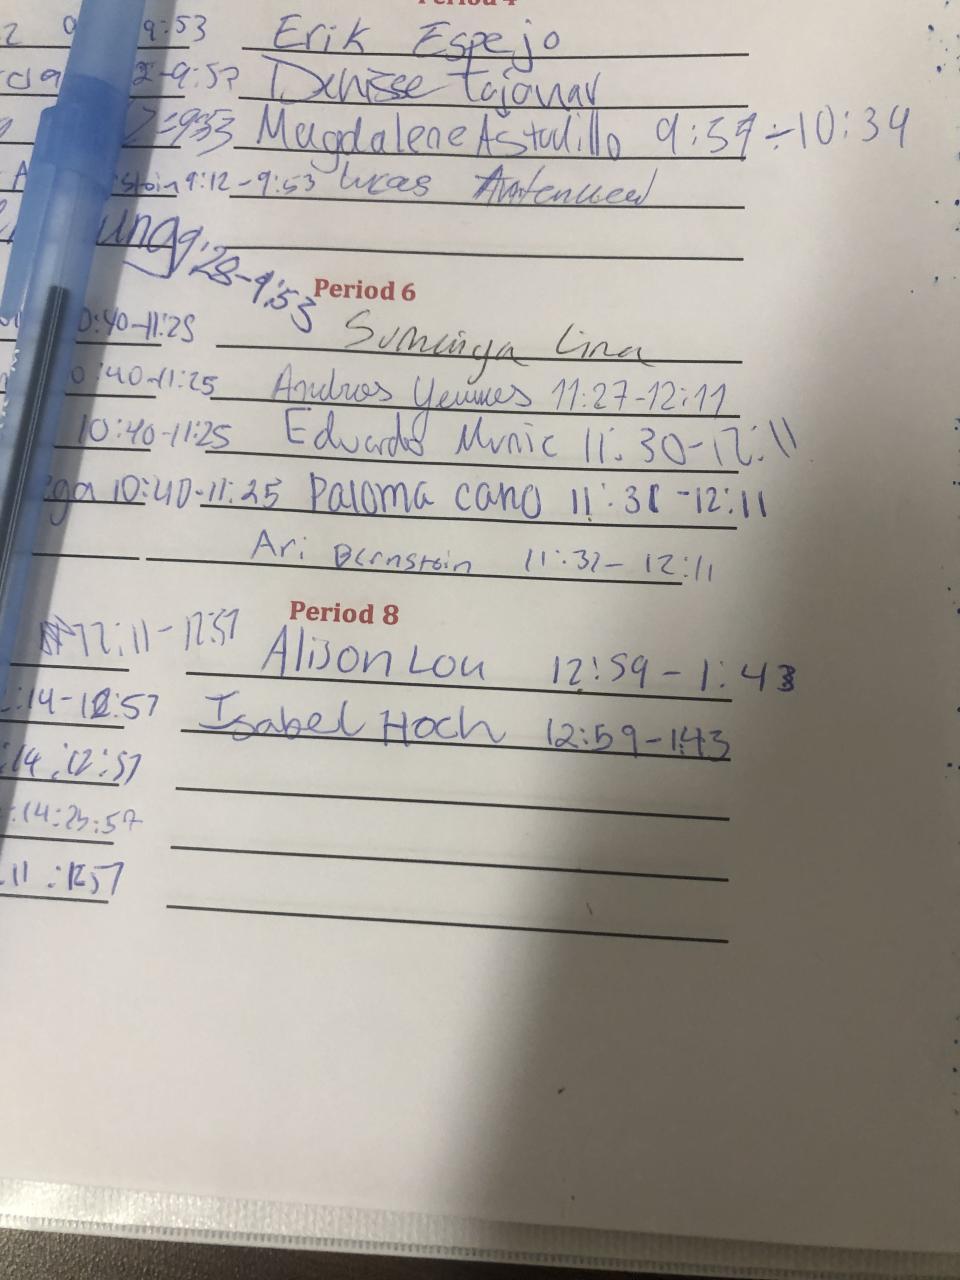 Period 4
9:53 Erik Espejo
-9:57 Denisse Tajonar
9:53 Magdalene Astudillo 9:59-10:34
9:12-9:53 Lucas
ung 9:28-9:53
Period 6
0:40-11:25 Lina
0:40-11:25 Andros 11:27-12:11
10:40-11:25 Edvardo Mvnic 11:30-12:11
ga 10:40-11:25 Paloma cano 11:31-12:11
Ari Bernstein 11:32-12:11
Period 8
12:11-12:57 Alison Lou 12:59-1:43
:14-12:57 Isabel Hoch 12:59-1:43
:14:12:57
:14:23:57
11:1257